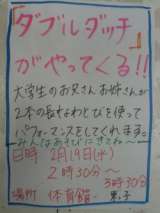 「ダブルダッチ」
がやってくる!!
大学生のお兄さんお姉さんが
2本の長なわとびを使って
パフォーマンスをしてくれます。
みんなあそびにきてね〜
日時 2月19日(水)
2時30分〜
3時30分
場所 体育館